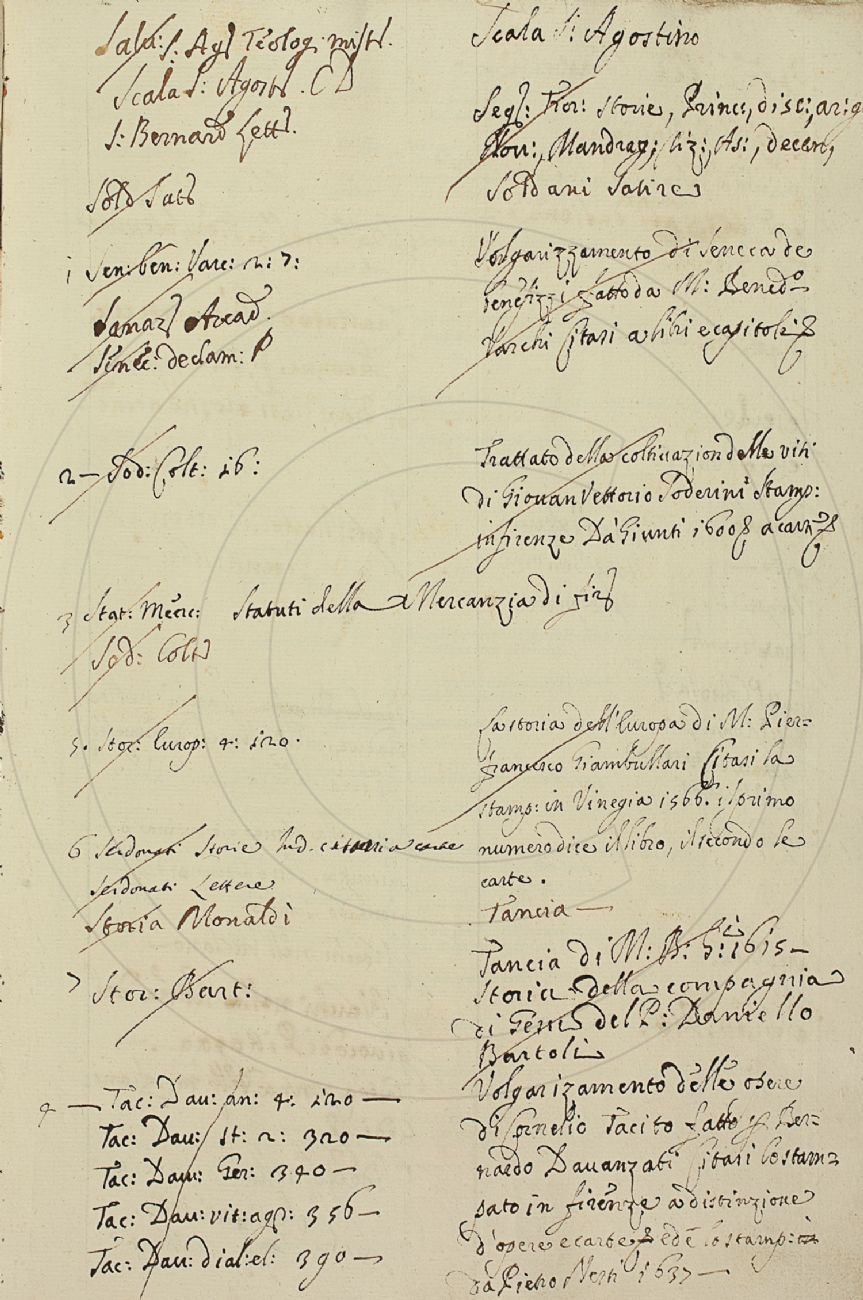 Salu: S. Ag Teolog: mist.
Scala S: Agost. CD
S: Bernard Lett.
Sold Sat
1 Sen: ben: Varc: 2: 7:
Sanaz Arcad.
Senec: declam: P
2 — Sod: Colt: 16:
3 Stat: Merc: Statuti della Mercanzia di fir
Sod: Colt
5. Stor: Europ: 4: 120.
6 Serdonati Storie Ind. citansi a carte
Serdonati Lettere
Storia Monaldi
7 Stor: Bart:
4 — Tac: Dau: An: 4: 120 —
Tac: Dau: st: 2: 320 —
Tac: Dau: Ger: 340 —
Tac: Dau: vit: agr: 356 —
Tac: Dau: dial: el: 390 —
Scala S: Agostino
Segr: Fior: Storie, Princ:, disc:, ar: g
Mandrag:, Cliz:, As:, decen,
Soldani Satire
Volgarizzamento di Seneca de
benefizzi fatto da M: Bened.o
Varchi Citasi a libri e capitoli
Trattato della coltivazion delle viti
di Giovan Vettorio Soderini Stamp:
in firenze Da Giunti 1600 a car
La storia dell'Europa di M: Pier=
francesco Giambullari Citasi la
stamp: in Vinegia 1566. il primo
numero dice il libro, il secondo le
carte.
Tancia —
Tancia di M: B: 1615 —
Storia della compagnia
di Gesu del P: Daniello
Bartoli
Volgarizamento delle opere
di Cornelio Tacito fatto p Ber=
nardo Davanzati Citasi lo stam=
pato in firenze a distinzione
d'opere e carte ed e lo stamp:
da Pietro Nesti 1637 —